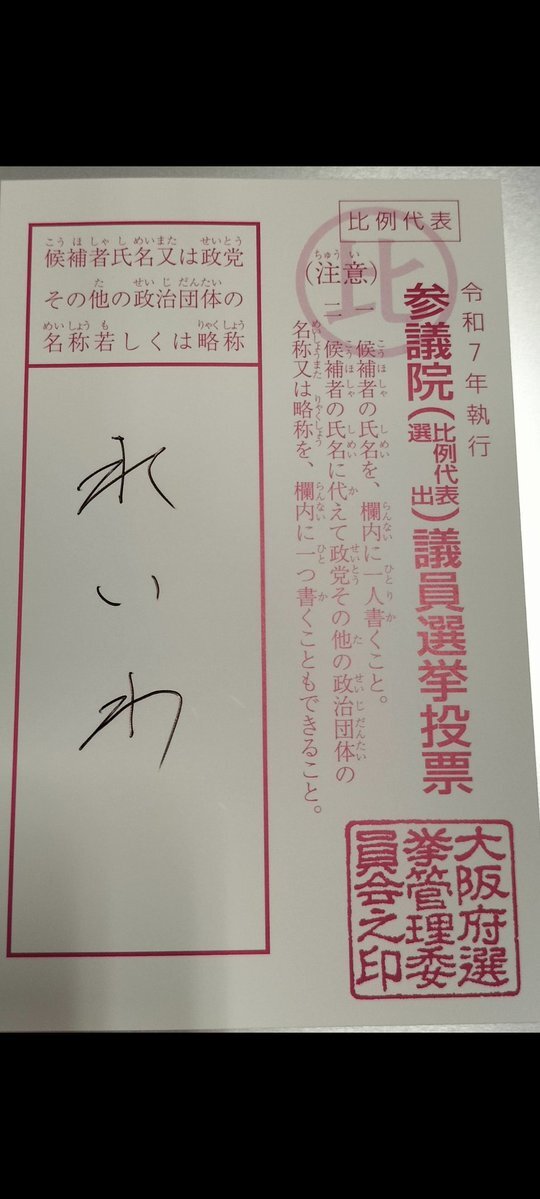 比例代表
令和7年執行
参議院(比例代表選出)議員選挙投票
(注意)
一 候補者の氏名を、欄内に一人書くこと。
二 候補者の氏名に代えて政党その他の政治団体の
名称又は略称を、欄内に一つ書くこともできること。
候補者氏名又は政党
その他の政治団体の
名称若しくは略称
れいわ
大阪府選
挙管理委
員会之印
比